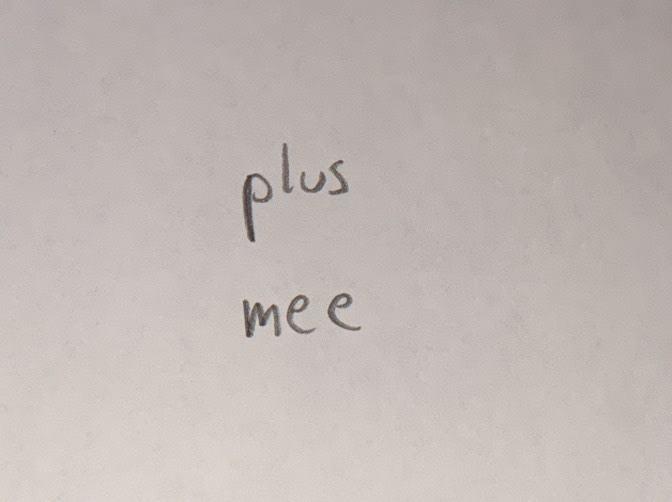 plus
mee